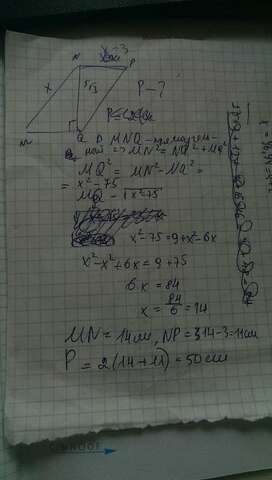 x-3
N P
x 5√3 P-?
M Q
Δ MNQ - прямоуголь-
ный => MN²=NQ²+MQ²
MQ² = MN²-NQ² =
= x²-75
MQ = √x²-75
x²-75=9+x²-6x
x²-x²+6x=9+75
6x=84
x=84/6=14
MN=14см, NP=14-3=11см
P=2(14+11)=50см